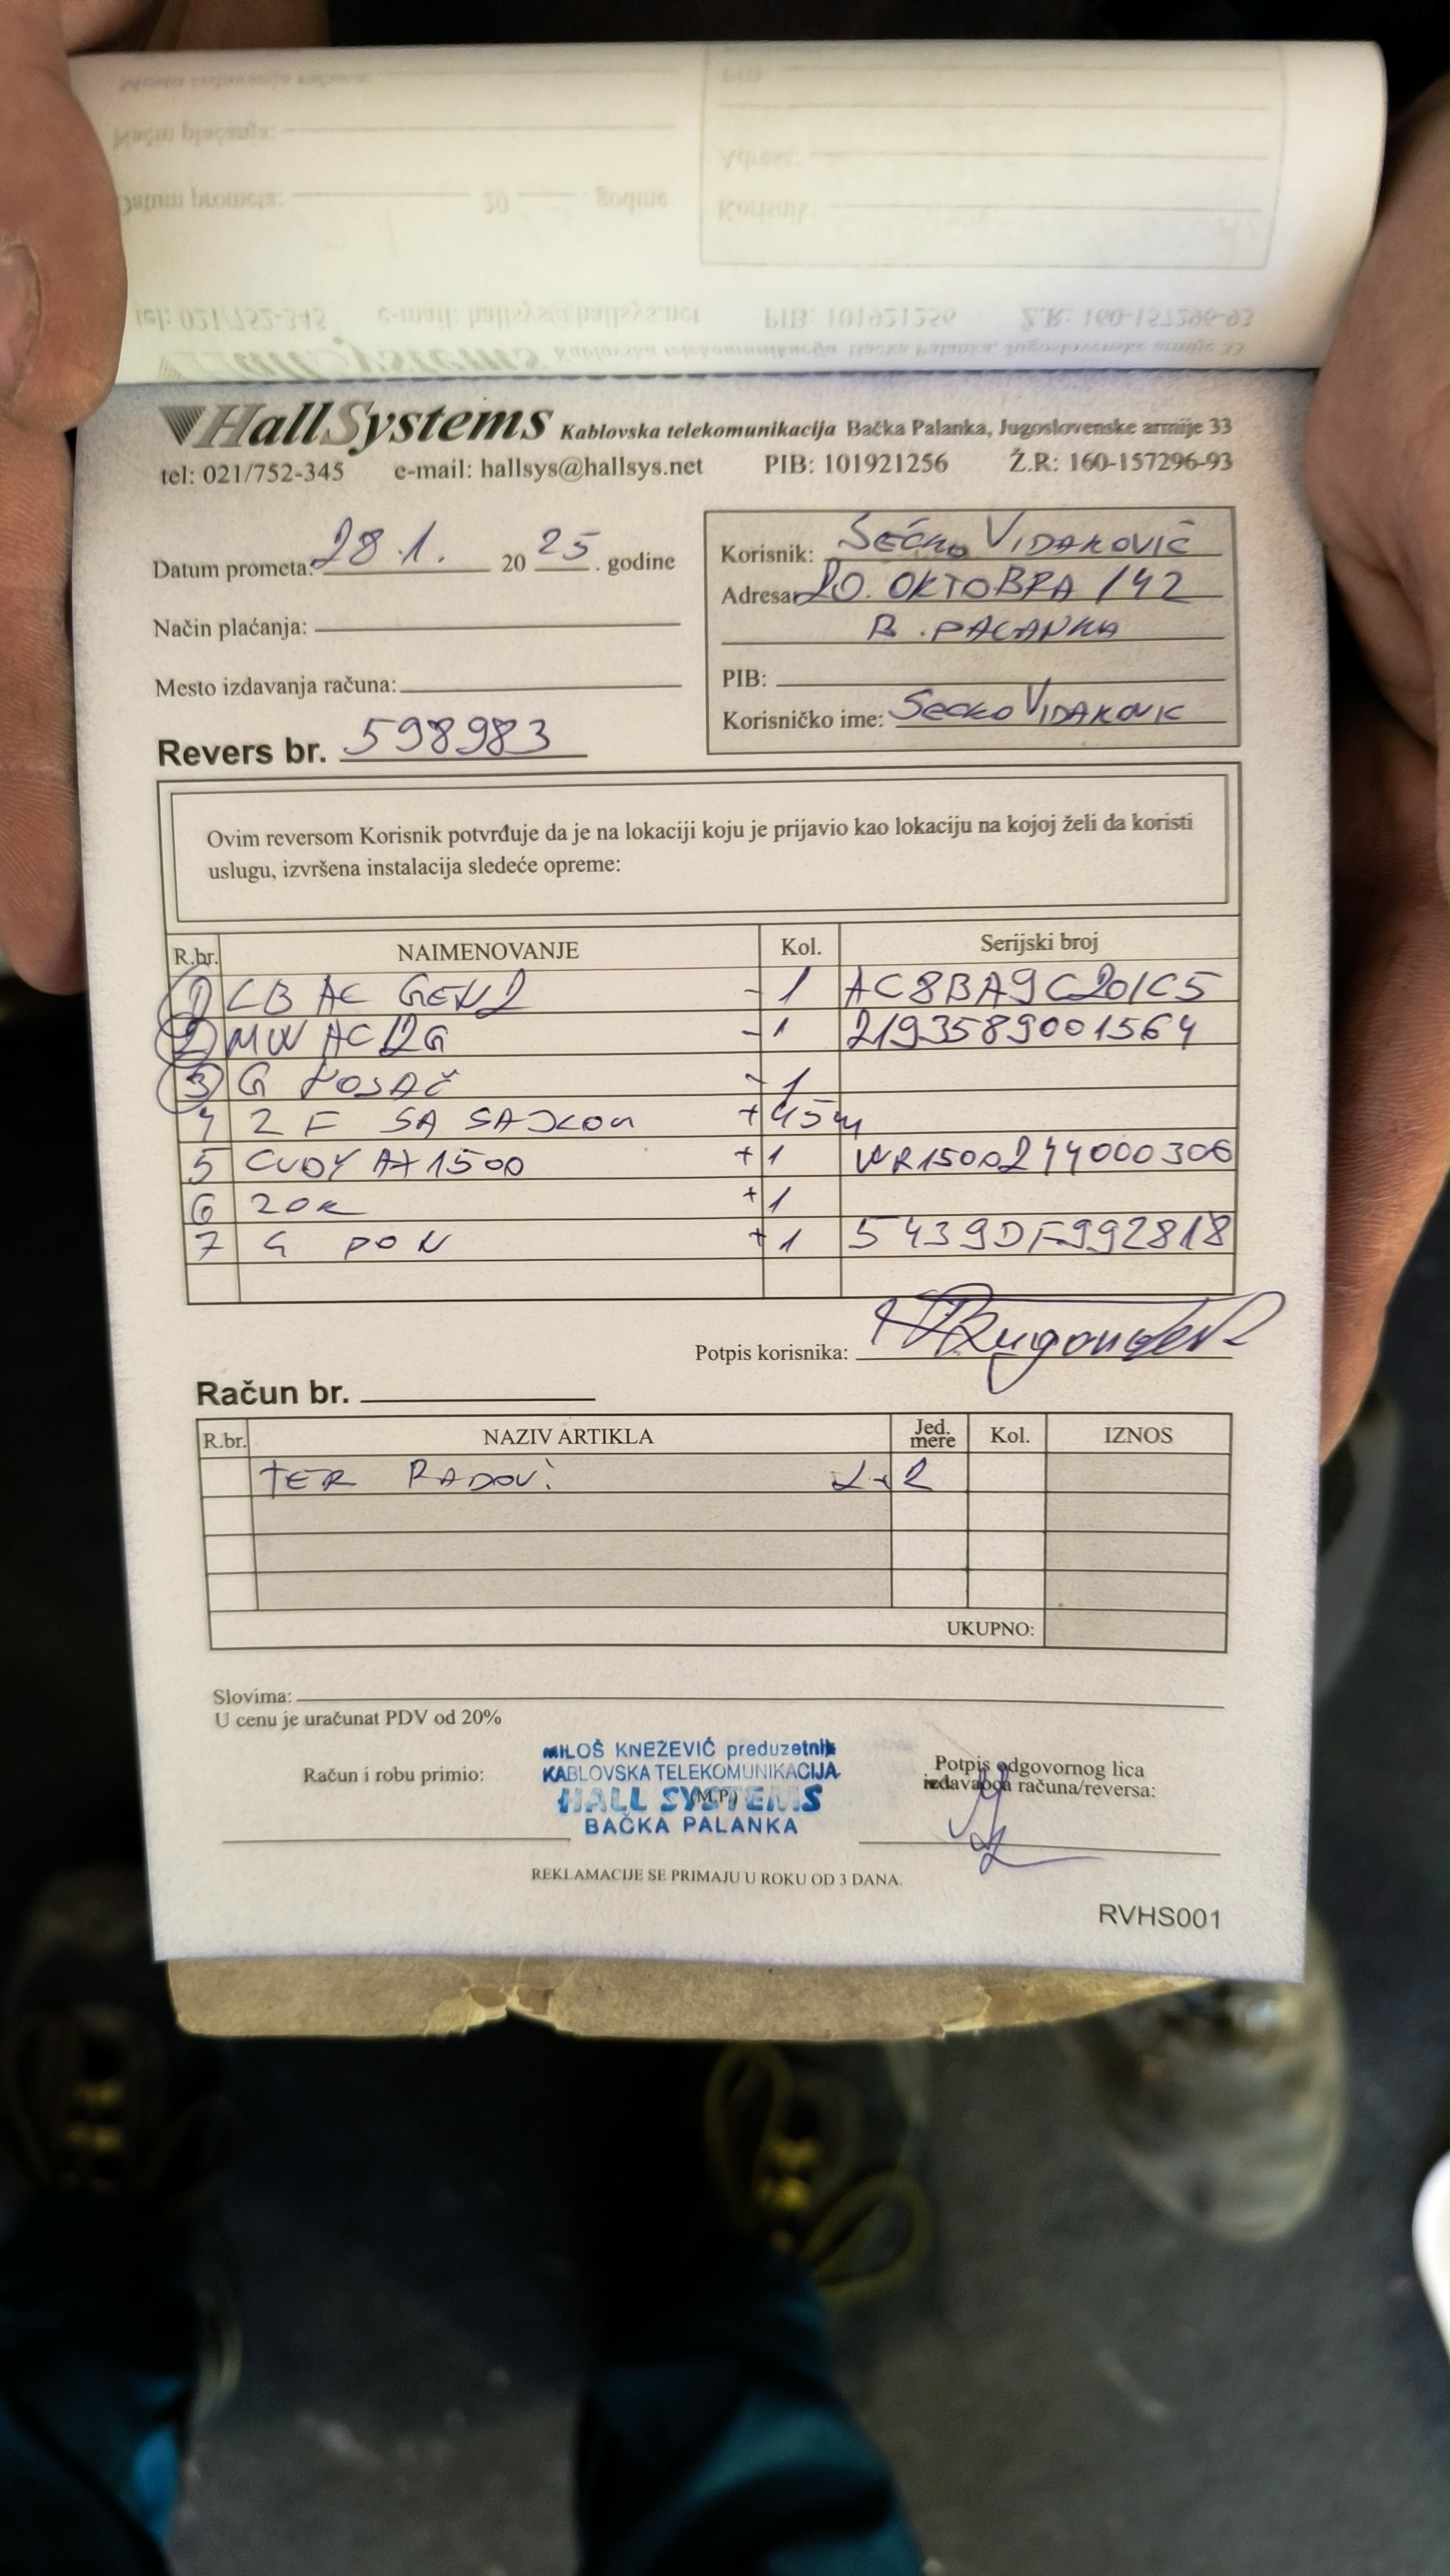 HallSystems Kablovska telekomunikacija Bačka Palanka, Jugoslovenske armije 33
tel: 021/752-345 e-mail: hallsys@hallsys.net PIB: 101921256 Ž.R: 160-157296-93
Datum prometa: 28.1. 20 25 . godine
Način plaćanja:
Mesto izdavanja računa:
Revers br. 598983
Korisnik: SEČKO VIDAKOVIČ
Adresa: 20. OKTOBRA 142
B. PALANKA
PIB:
Korisničko ime: SECKO VIDAKOVIC
Ovim reversom Korisnik potvrđuje da je na lokaciji koju je prijavio kao lokaciju na kojoj želi da koristi
uslugu, izvršena instalacija sledeće opreme:
R.br. NAIMENOVANJE Kol. Serijski broj
1 LB AC GEN2 - 1 AC8BA9C201C5
2 MW AC12G - 1 2193589001564
3 G NOSAČ - 1
4 2 F SA SAJLOM + 45m
5 CUDY AX1500 + 1 WR1500244000306
6 ZOK + 1
7 G PON + 1 5439DF992818
Potpis korisnika:
Račun br.
R.br. NAZIV ARTIKLA Jed. mere Kol. IZNOS
TER RADOVI 2
UKUPNO:
Slovima:
U cenu je uračunat PDV od 20%
Račun i robu primio:
MILOŠ KNEŽEVIĆ preduzetnik
KABLOVSKA TELEKOMUNIKACIJA
HALL SYSTEMS
(M.P)
BAČKA PALANKA
Potpis odgovornog lica
izdavaoca računa/reversa:
REKLAMACIJE SE PRIMAJU U ROKU OD 3 DANA.
RVHS001